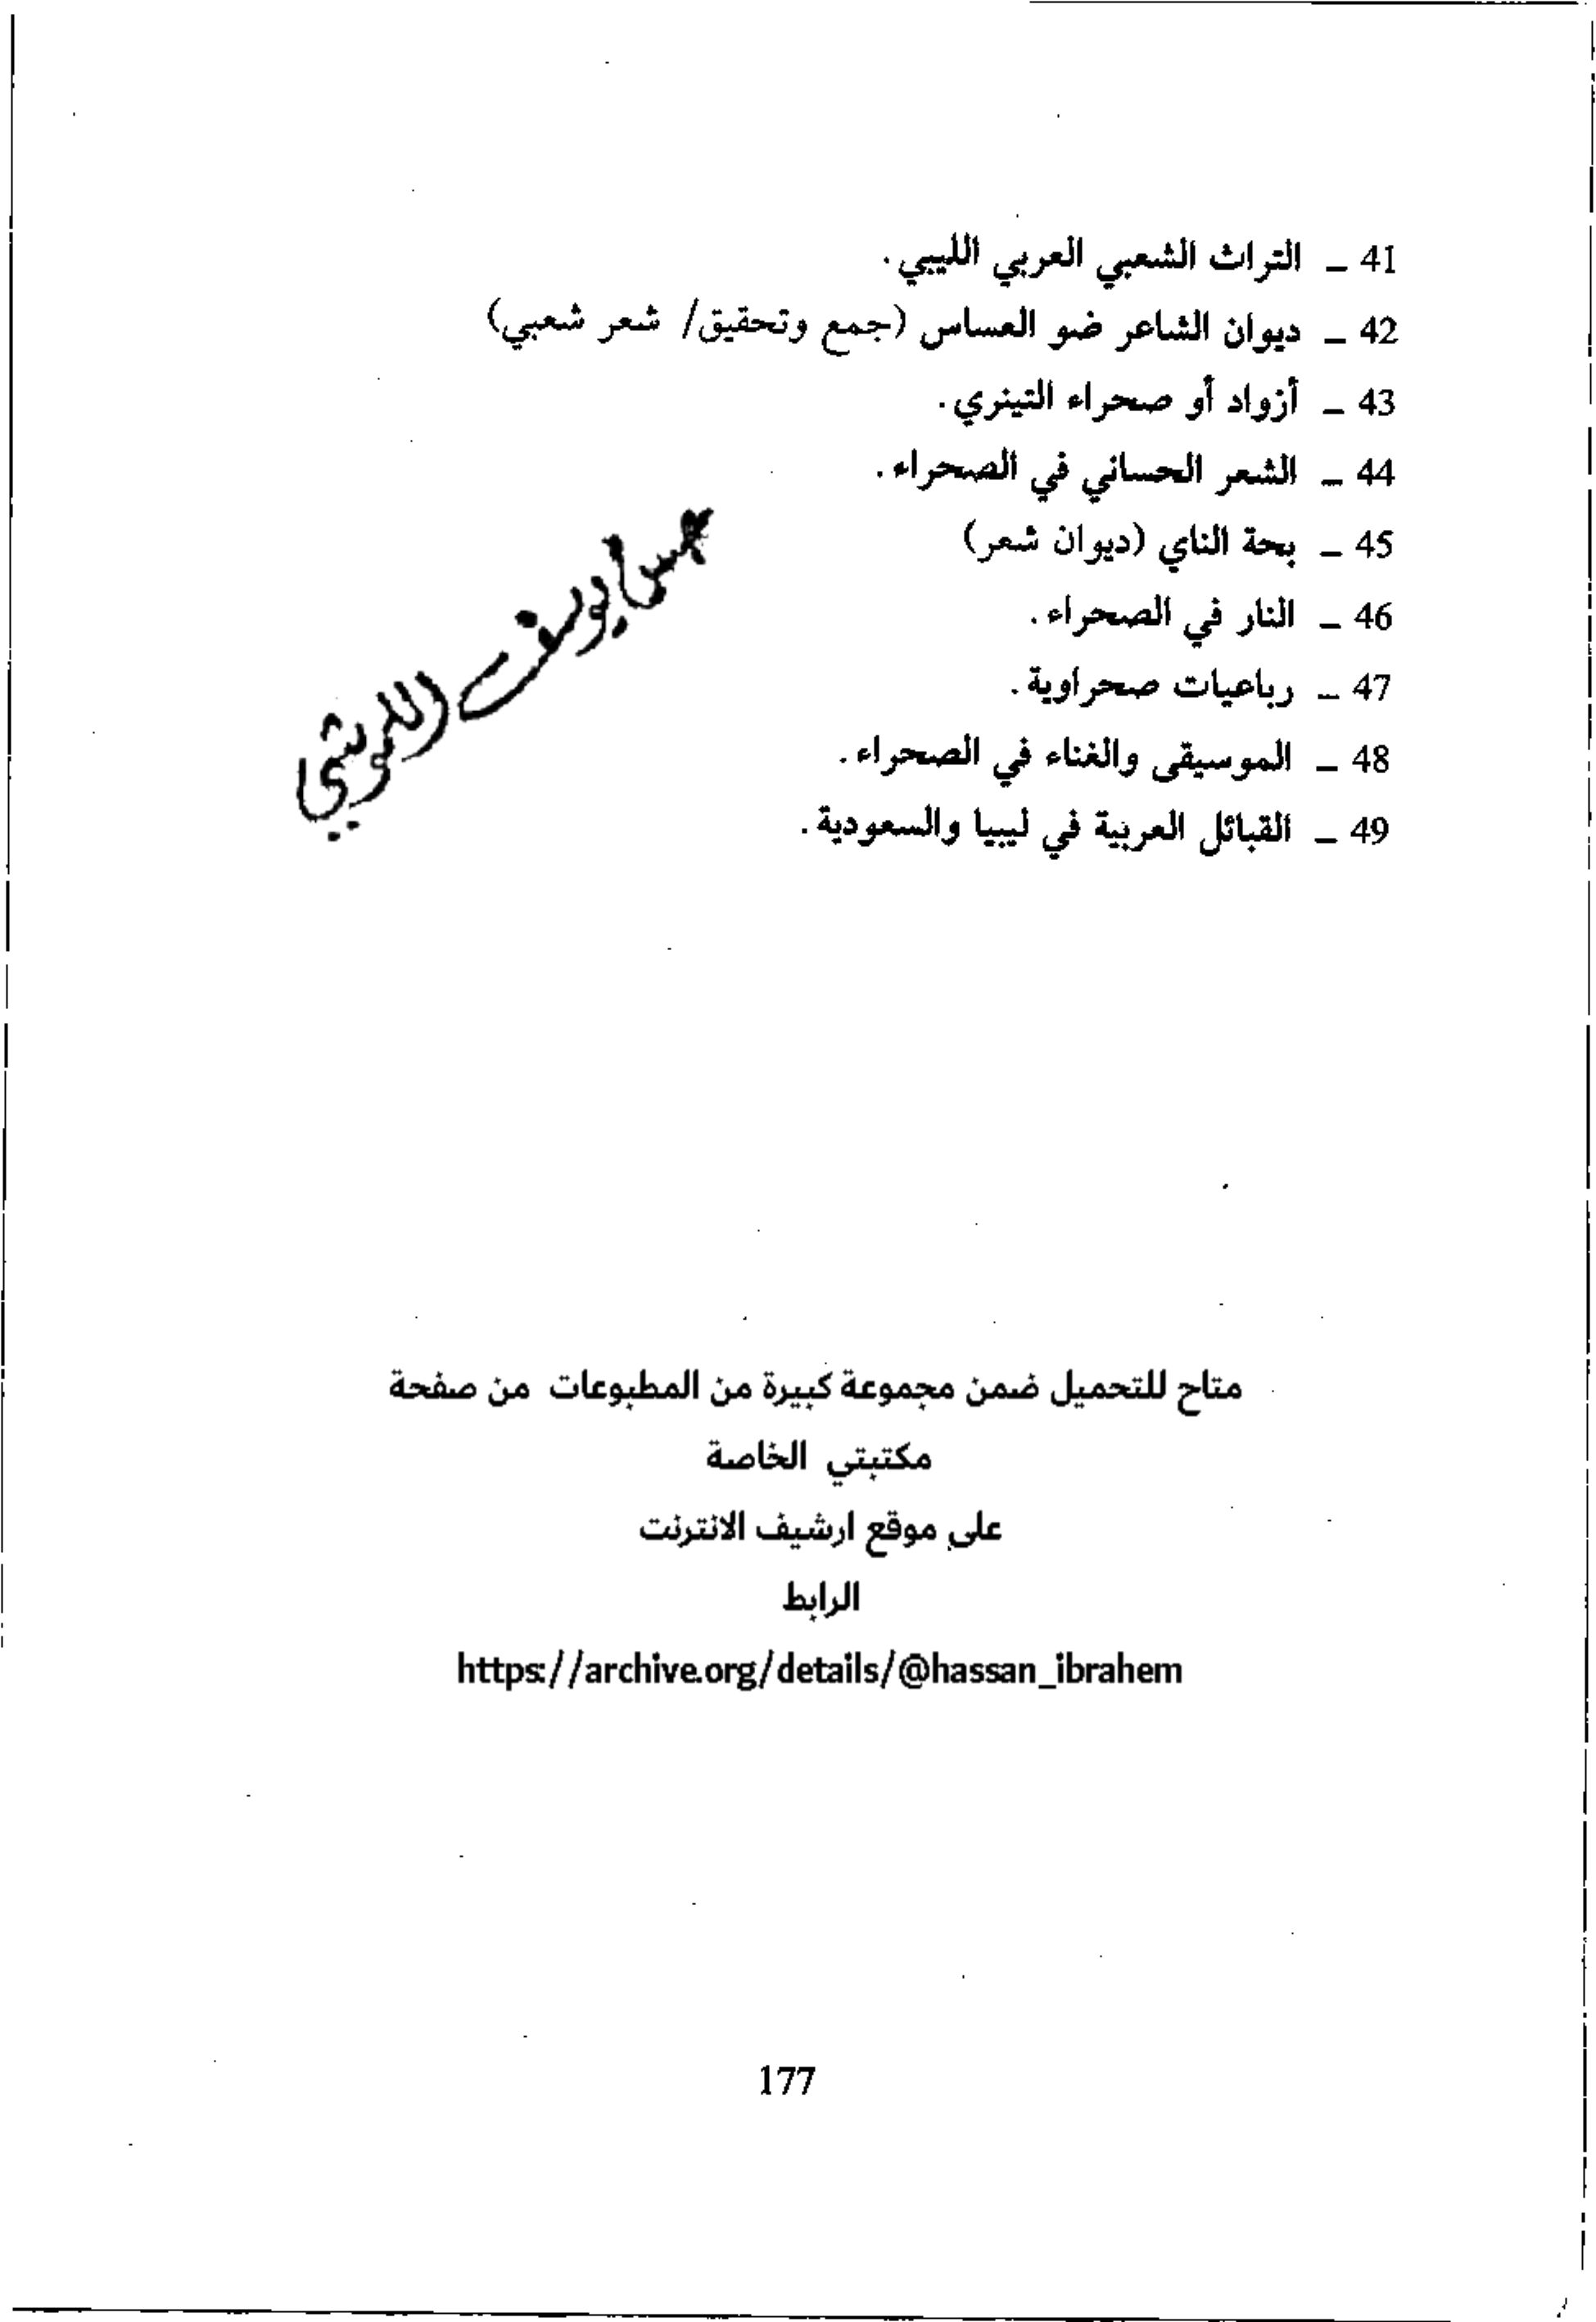 41 ـ التراث الشعبي العربي الليبي.
42 ـ ديوان الشاعر ضو العساس (جمع وتحقيق/ شعر شعبي)
43 ـ أزواد أو صحراء التينري.
44 ـ الشعر الحساني في الصحراء.
45 ـ بحة الناي (ديوان شعر)
46 ـ النار في الصحراء.
47 ـ رباعيات صحراوية.
48 ـ الموسيقى والغناء في الصحراء.
49 ـ القبائل العربية في ليبيا والسعودية.
يوسف
متاح للتحميل ضمن مجموعة كبيرة من المطبوعات من صفحة
مكتبتي الخاصة
على موقع ارشيف الانترنت
الرابط
https://archive.org/details/@hassan_ibrahem
177